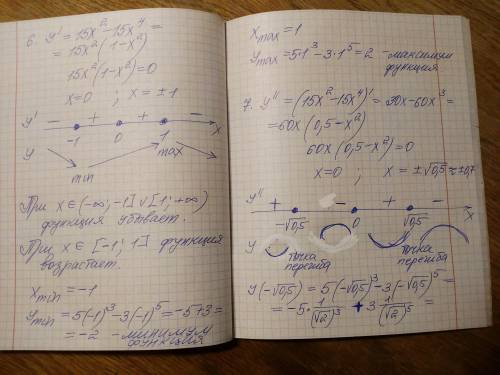 6. y' = 15x² - 15x⁴ =
= 15x²(1-x²)
15x²(1-x²) = 0
x=0 ; x = ±1
y' - + + -
-1 0 1 x
y
min max
При x ∈ (-∞; -1] ∪ [1; +∞)
функция убывает.
При x ∈ [-1; 1] функция
возрастает.
x min = -1
y min = 5(-1)³ - 3(-1)⁵ = -5+3 =
= -2 - минимум
функции
x max = 1
y max = 5·1³ - 3·1⁵ = 2 - максимум
функции
7. y'' = (15x² - 15x⁴)' = 30x - 60x³ =
= 60x(0,5 - x²)
60x(0,5 - x²) = 0
x=0 ; x = ±√0,5 ≈ ±0,7
y'' + - + -
-√0,5 0 √0,5 x
y
точка перегиба точка перегиба
y(-√0,5) = 5(-√0,5)³ - 3(-√0,5)⁵ =
= -5 · 1/(√2)³ + 3 1/(√2)⁵ =